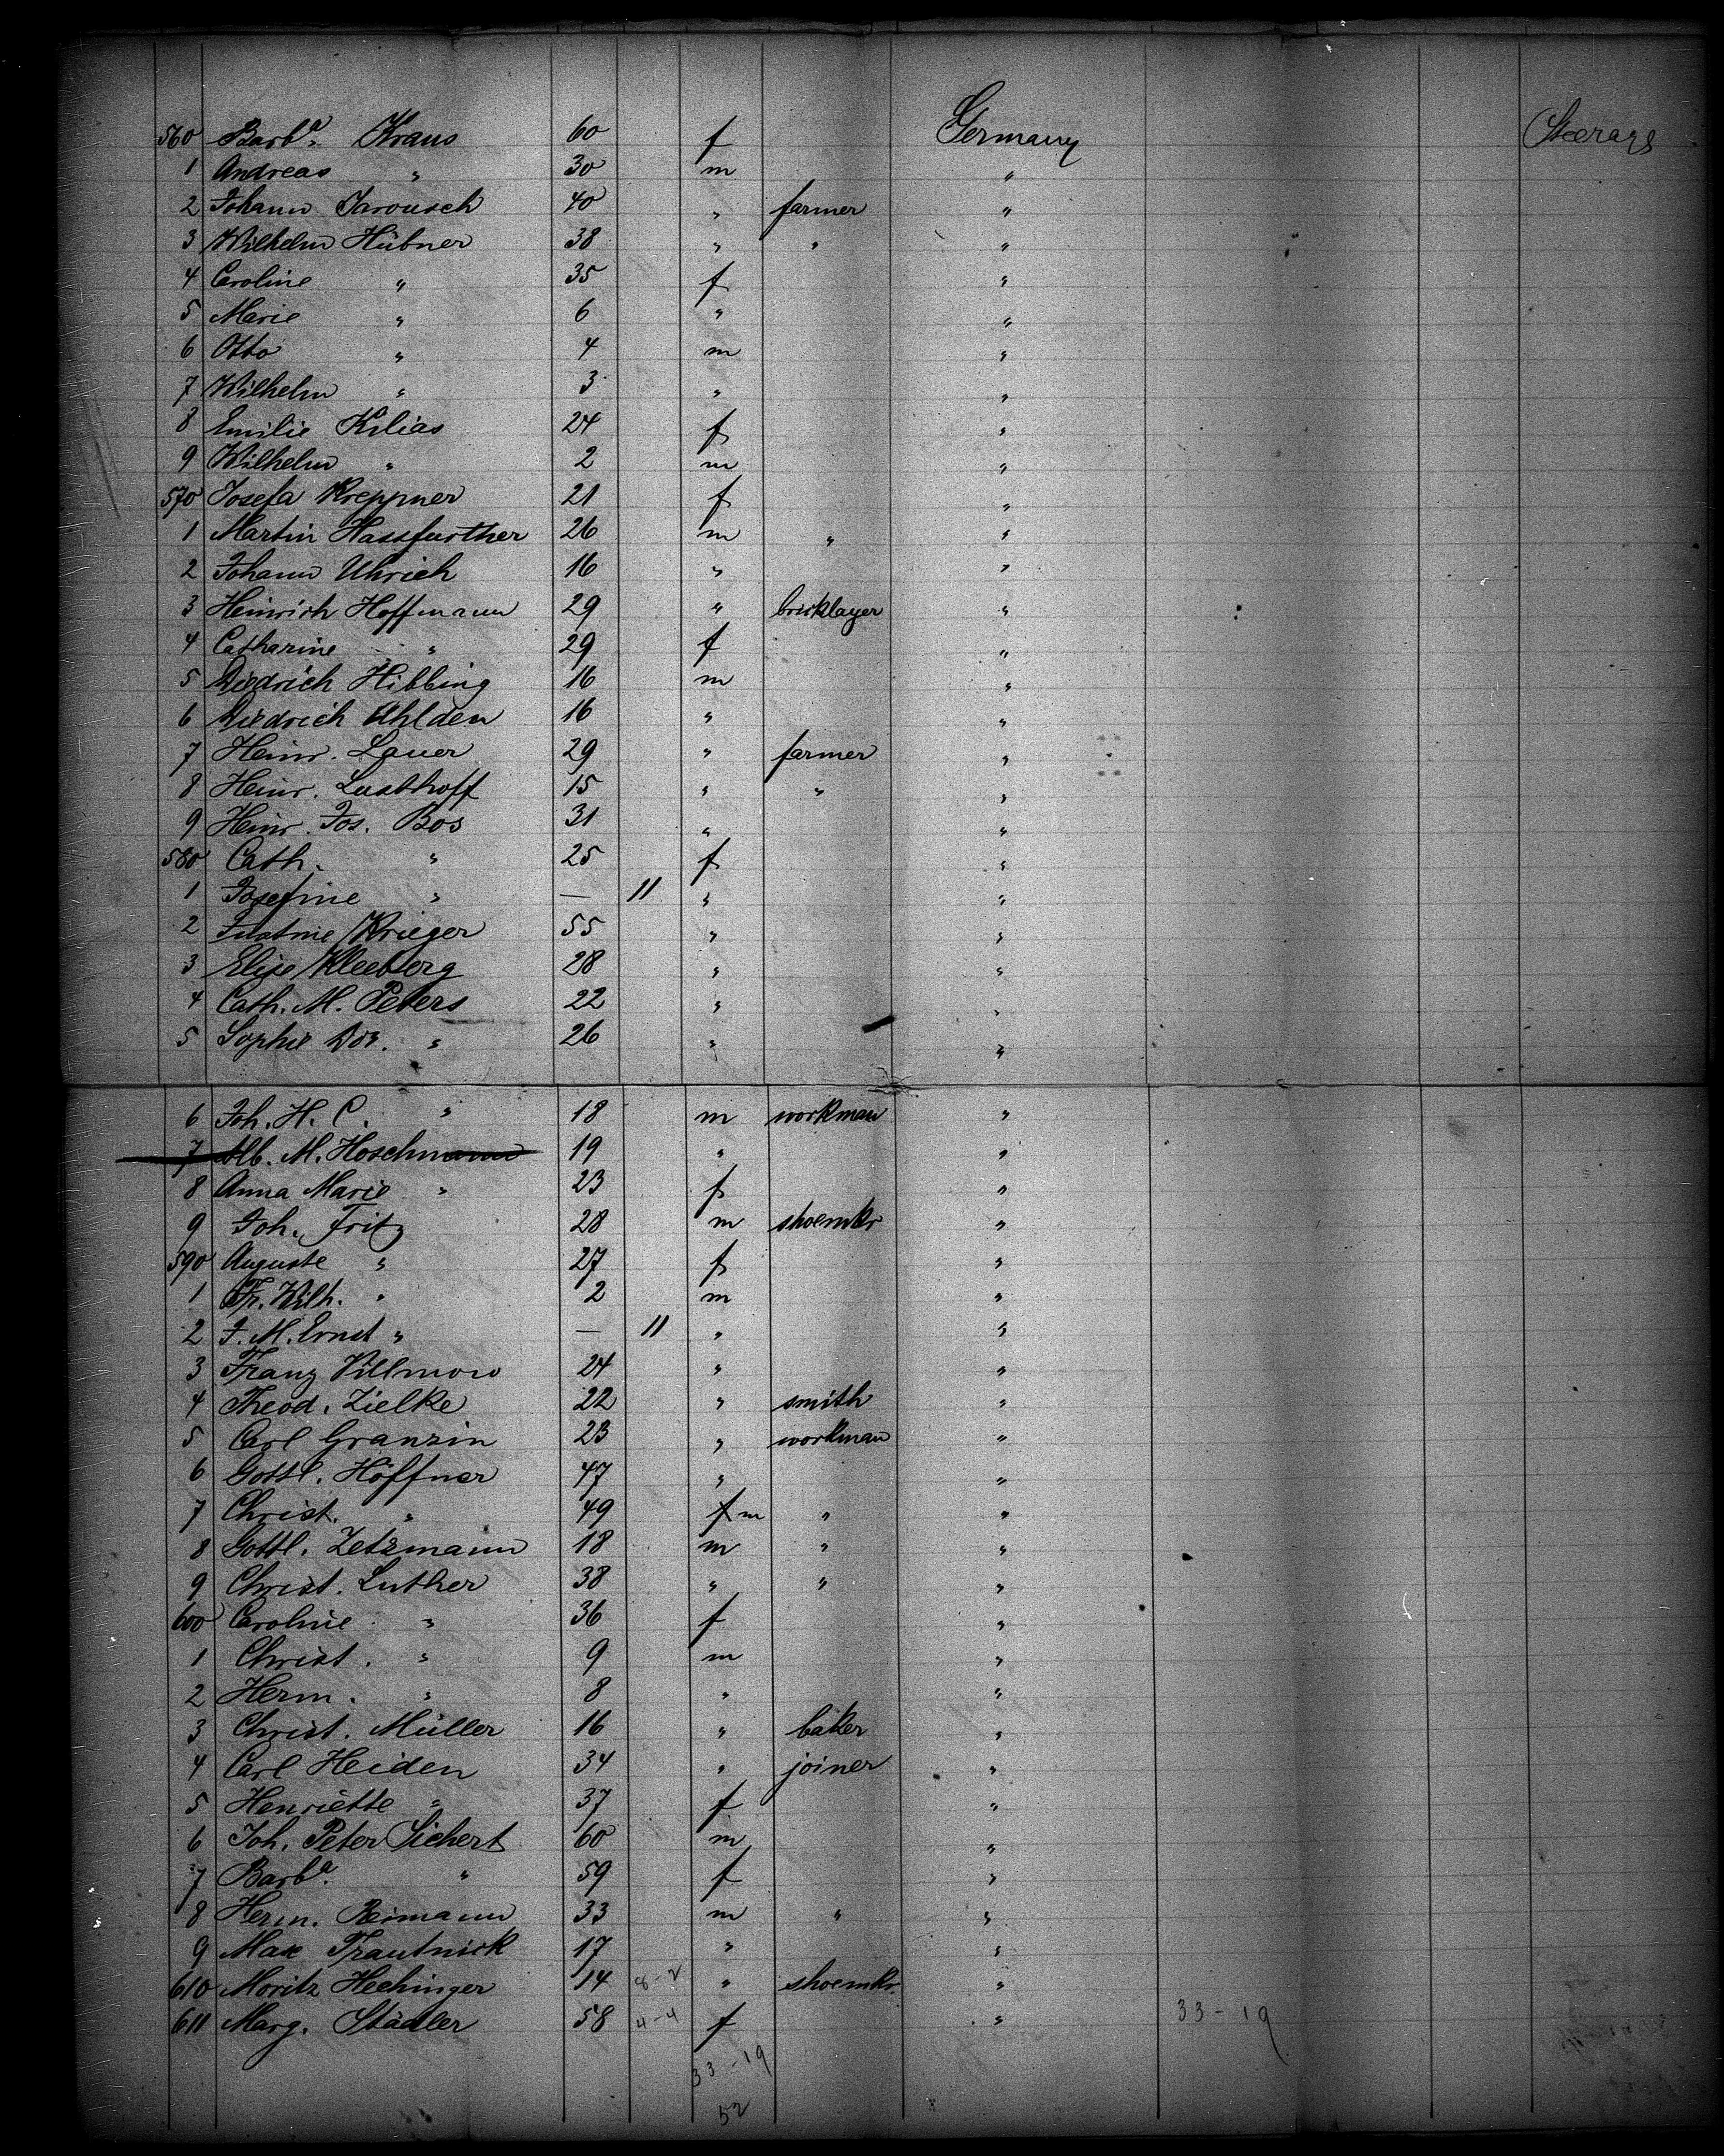 560 Barbᵃ Kraus 60 f Germany Steerage
1 Andreas " 30 m "
2 Johann Jarousch 40 " farmer "
3 Wilhelm Hübner 38 " " "
4 Caroline " 35 f "
5 Marie " 6 " "
6 Otto " 4 m "
7 Wilhelm " 3 " "
8 Emilie Kilias 24 f "
9 Wilhelm " 2 m "
570 Josefa Kreppner 21 f "
1 Martin Hassfurther 26 m " "
2 Johann Uhrich 16 " "
3 Heinrich Hoffmann 29 " bricklayer "
4 Catharine " 29 f "
5 Diedrich Hibbing 16 m "
6 Diedrich Uhlden 16 " "
7 Heinr. Lauer 29 " farmer "
8 Heinr. Lusthoff 15 " " "
9 Heinr. Jos. Bos 31 " "
580 Cath. " 25 f "
1 Josefine " — 11 " "
2 Justine Krieger 55 " "
3 Elise Kleeberg 28 " "
4 Cath. M. Peters 22 " "
5 Sophie Dor. " 26 " "
6 Joh. H. C. " 18 m workman "
7 Alb. M. Hoschmann 19 " "
8 Anna Marie " 23 f "
9 Joh. Fritz 28 m shoemkr "
590 Auguste " 27 f "
1 Fr. Wilh. " 2 m "
2 J. M. Ernst " — 11 " "
3 Franz Villmow 24 " "
4 Theod. Zielke 22 " smith "
5 Carl Granzin 23 " workman "
6 Gottl. Höffner 47 " "
7 Christ. " 49 f m " "
8 Gottl. Zetzmann 18 m " "
9 Christ. Luther 38 " " "
600 Caroline " 36 f "
1 Christ. " 9 m "
2 Herm. " 8 " "
3 Christ. Müller 16 " baker "
4 Carl Heiden 34 " joiner "
5 Henriette " 37 f "
6 Joh. Peter Sichert 60 m "
7 Barbᵃ. " 59 f "
8 Herm. Reimann 33 m " "
9 Max Trautnick 17 " "
610 Moritz Hechinger 14 8-2 " shoemkr. "
611 Marg. Städler 58 4-4 f " 33-19
33-19
52